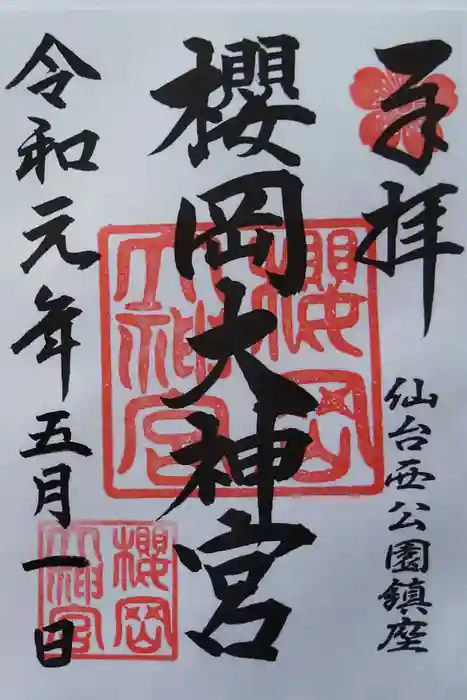 奉拝
仙台西公園鎮座
櫻岡大神宮
櫻岡大神宮
令和元年五月一日
櫻岡大神宮